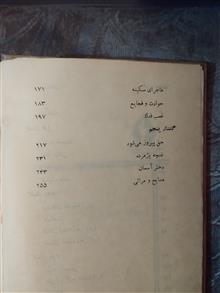 ماجرای سکینه ۱۷۱
حوادث و فجایع ۱۸۳
غصب فدک ۱۹۷
گفتار پنجم
حق پیروز می‌شود ۲۱۷
غنچه پژمرده ۲۳۱
دختر آسمان ۲۴۳
منابع و مراثی ۲۵۵